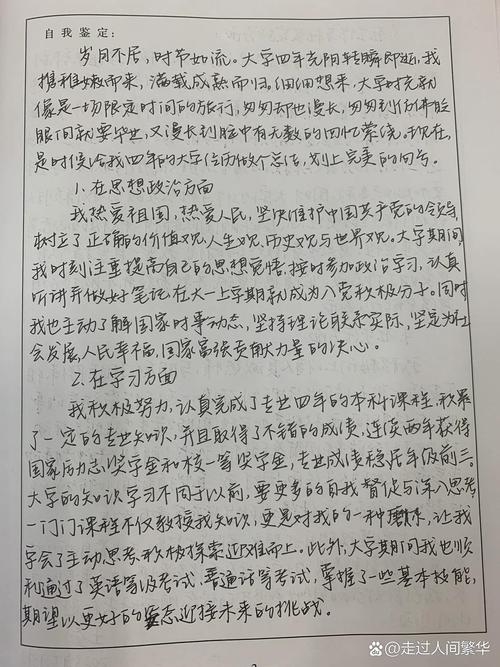 自我鉴定:
岁月不居,时节如流。大学四年光阴转瞬即逝,我
携稚嫩而来,满载成熟而归。细细想来,大学时光就
像是一场限定时间的旅行,匆匆却也漫长,匆匆到仿佛眨
眼间就要毕业,又漫长到脑中有无数的回忆萦绕。现在,
是时候给我四年的大学经历做个总结,划上完美的句号。
1.在思想政治方面
我热爱祖国,热爱人民,坚决维护中国共产党的领导,
树立了正确的价值观、人生观、历史观与世界观。大学期间,
我时刻注重提高自己的思想觉悟,按时参加政治学习,认真
听讲并做好笔记,在大一上学期就成为入党积极分子。同时
我也主动了解国家时事动态,坚持理论联系实际,坚定为社
会发展、人民幸福、国家富强贡献力量的决心。
2.在学习方面
我积极努力,认真完成了专业四年的本科课程,积累
了一定的专业知识,并且取得了不错的成绩,连续两年获得
国家励志奖学金和校一等奖学金,专业成绩稳居年级前三。
大学的知识学习不同于以前,要更多的自我督促与深入思考
一门门课程不仅教授我知识,更是对我的一种磨炼,让我
学会了主动思考积极探索迎难而上。此外,大学期间我也顺
利通过了英语等级考试、普通话等考试,掌握了一些基本技能,
期望以更好的姿态迎接未来的挑战。
走过人间繁华